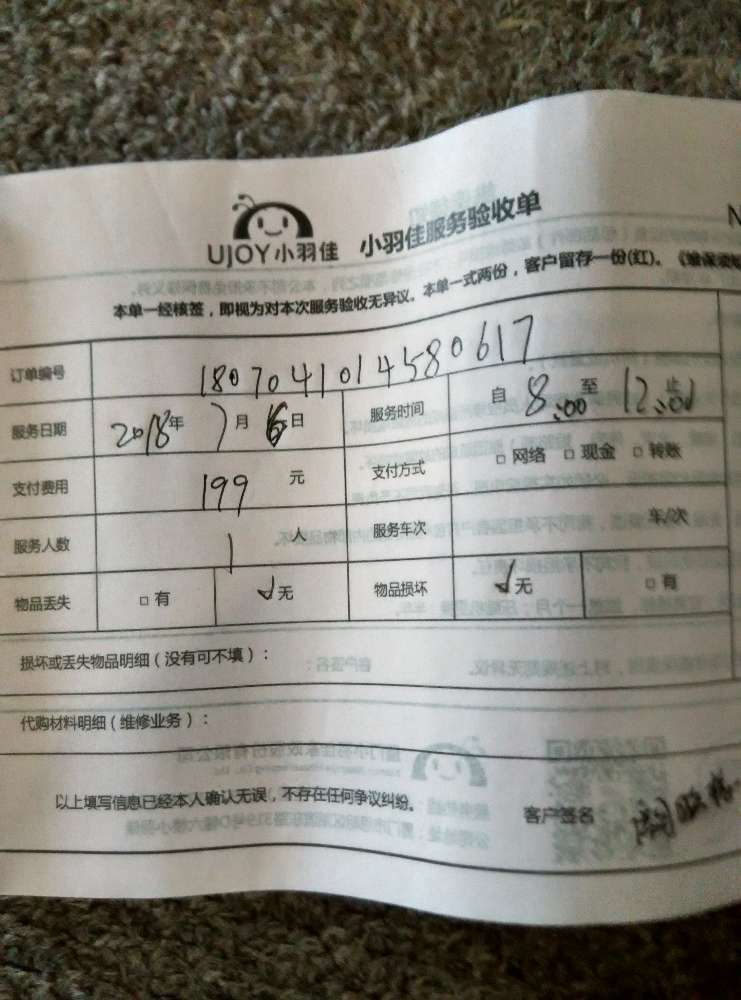 UJOY小羽佳 小羽佳服务验收单
N
本单一经核签，即视为对本次服务验收无异议。本单一式两份，客户留存一份(红)。
订单编号 1807041014580617
服务日期 2018年 7月 6日 服务时间 自 8:00 至 12:00 止
支付费用 199 元 支付方式 □ 网络 □ 现金 □ 转账
服务人数 1 人 服务车次 车/次
物品丢失 □ 有 √无 物品损坏 √无 □ 有
损坏或丢失物品明细（没有可不填）：
代购材料明细（维修业务）：
以上填写信息已经本人确认无误，不存在任何争议纠纷。 客户签名